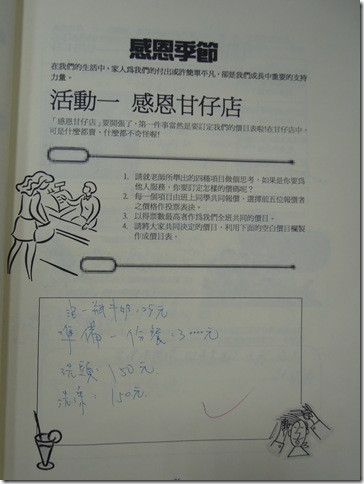 感恩季節
在我們的生活中，家人為我們的付出或許簡單平凡，卻是我們成長中重要的支持
力量。
活動一 感恩甘仔店
「感恩甘仔店」要開張了，第一件事當然是要訂定我們的價目表啦!在甘仔店中，
可是什麼都賣，什麼都不奇怪喔!
1. 請就老師所舉出的四種項目做個思考，如果是你要為
他人服務，你要訂定怎樣的價碼呢？
2. 每一個項目由班上同學共同報價，選擇前五位報價者
之價格作投票表決。
3. 以得票數最高者作為我們全班共同的價目。
4. 請將大家共同決定的價目，利用下面的空白價目欄製
作成價目表。
泡一瓶牛奶:25元
準備一份餐:3
洗頭:150元
洗澡:150元